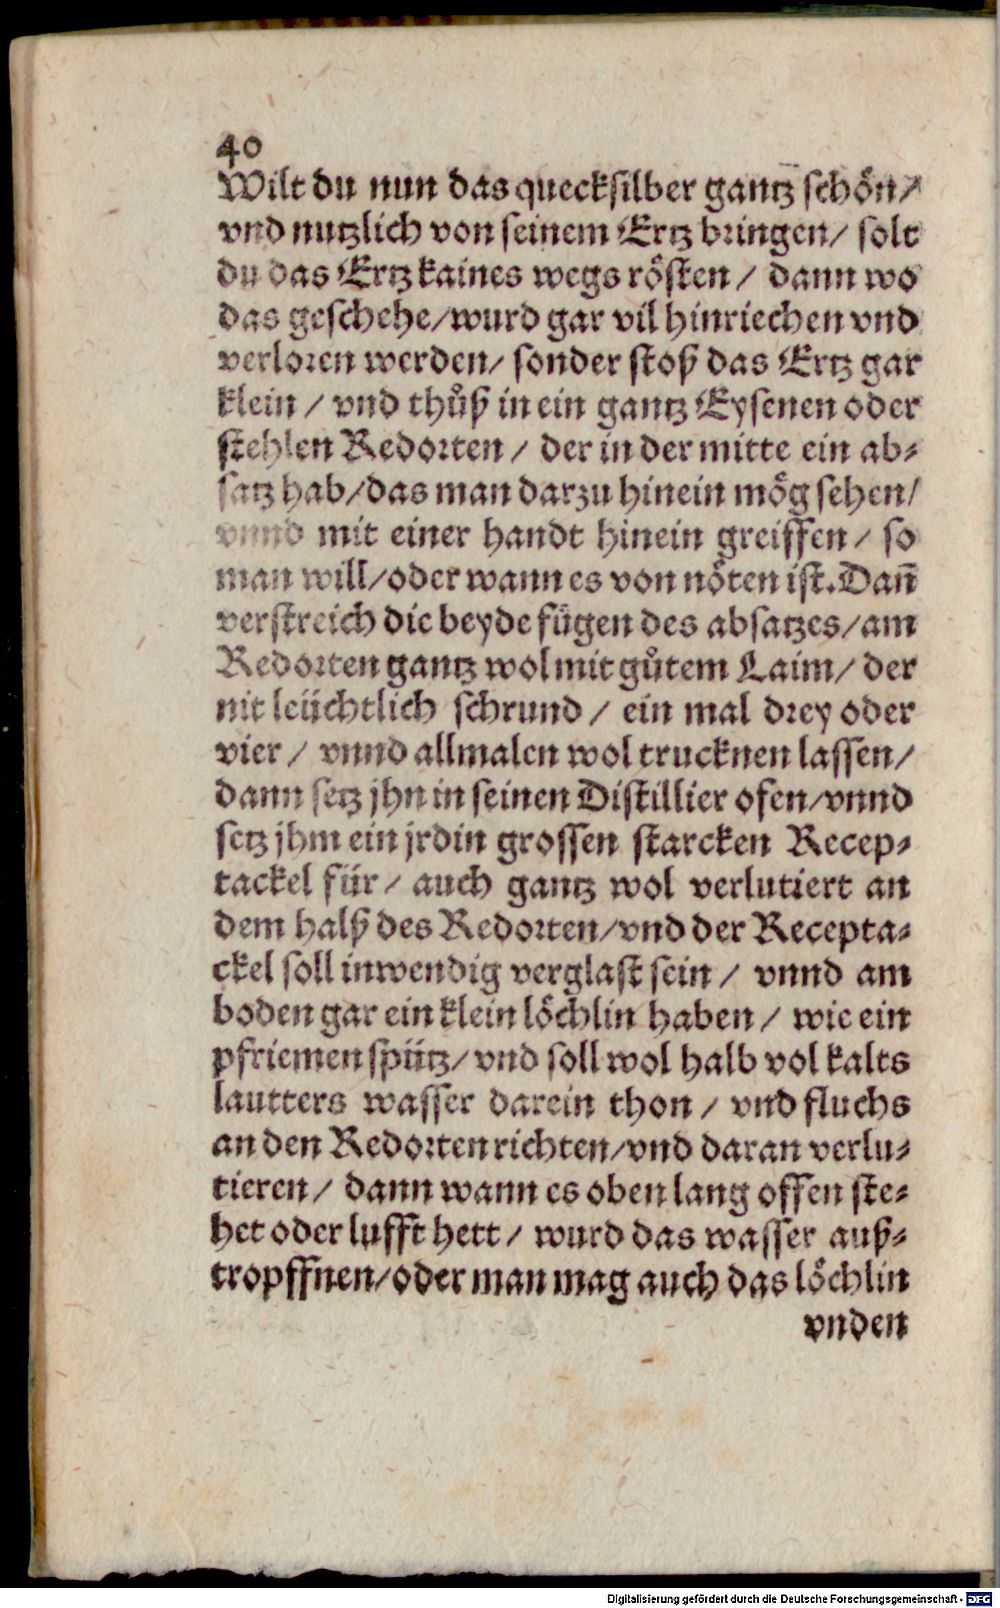 40
Wilt du nun das quecksilber gantz schön/
vnd nutzlich von seinem Ertz bringen/ solt
du das Ertz kaines wegs rösten / dann wo
das geschehe/wurd gar vil hinriechen vnd
verloren werden/ sonder stoß das Ertz gar
klein / vnd thůß in ein gantz Eysenen oder
stehlen Redorten / der in der mitte ein ab⸗
satz hab/das man darzu hinein mög sehen/
vnnd mit einer handt hinein greiffen / so
man will/oder wann es von nöten ist. Dañ
verstreich die beyde fůgen des absatzes/am
Redorten gantz wol mit gůtem Laim/ der
nit leüchtlich schrund / ein mal drey oder
vier / vnnd allmalen wol trucknen lassen/
dann setz jhn in seinen Distillier ofen/vnnd
setz jhm ein jrdin grossen starcken Recep⸗
tackel für / auch gantz wol verlutiert an
dem halß des Redorten/vnd der Recepta⸗
ckel soll inwendig verglast sein / vnnd am
boden gar ein klein löchlin haben / wie ein
pfriemen spütz/vnd soll wol halb vol kalts
lautters wasser darein thon / vnd fluchs
an den Redorten richten/vnd daran verlu⸗
tieren / dann wann es oben lang offen ste⸗
het oder lufft hett / wurd das wasser auß⸗
tropffnen/oder man mag auch das löchlin
vnden
Digitalisierung gefördert durch die Deutsche Forschungsgemeinschaft - DFG